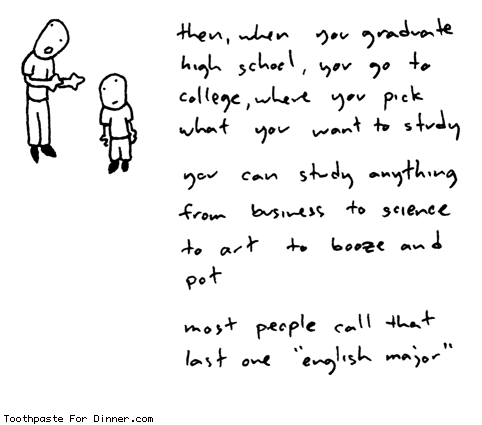 then, when you graduate
high school, you go to
college, where you pick
what you want to study
you can study anything
from business to science
to art to booze and
pot
most people call that
last one "english major"
Toothpaste For Dinner.com